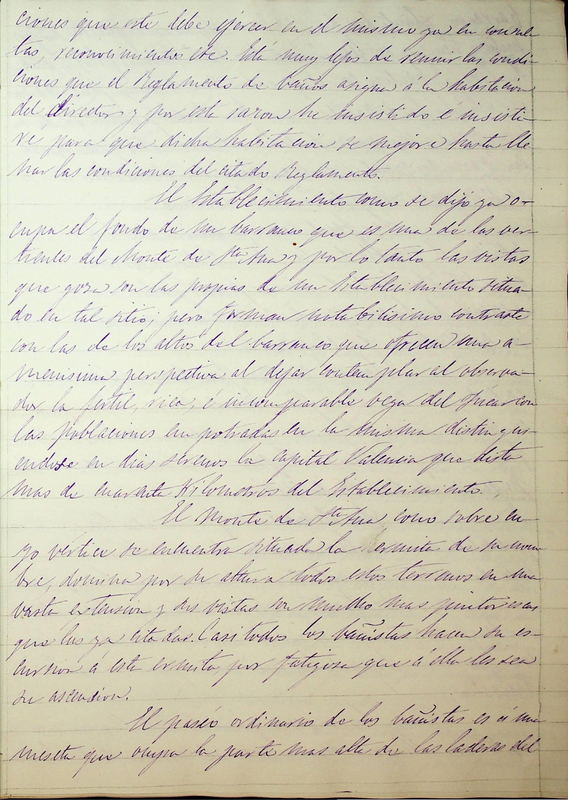 ciones que este debe ejercer en el mismo ya en consul-
tas, reconocimientos etc. Está muy lejos de reunir las condi-
ciones que el Reglamento de baños asigna á la habitacion
del Director y por esta razon he insistido e insisti-
ré para que dicha habitacion se mejore hasta lle-
nar las condiciones del citado Reglamento.
El Establecimiento como se dijo ya o-
cupa el fondo de un barranco que es una de las ver-
tientes del Monte de Sta Ana y por lo tanto las vistas
que goza son las propias de un Establecimiento situa-
do en tal sitio; pero forman notabilisimo contraste
con las de los altos del barranco que ofrecen una a-
menisima perspectiva al dejar contemplar al observa-
dor la fertil, rica, é incomparable vega del Jucar con
las poblaciones empotradas en la misma distingui-
endose en dias serenos la capital Valencia que dista
mas de cuarenta Kilometros del Establecimiento.
El Monte de Sta Ana, como sobre cu-
yo vértice se encuentra situada la hermita de su nom-
bre, domina por su altura todos estos terrenos en una
vasta extension y sus vistas son mucho mas pintorescas
que las ya citadas. Casi todos los bañistas hacen su es-
cursion á esta ermita por fatigosa que á ella les sea
su ascension.
El paseo ordinario de los bañistas es á una
meseta que ocupa la parte mas alta de las laderas del